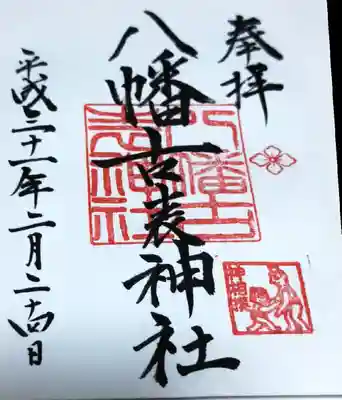 奉拝
八幡古表神社
平成三十一年二月二十四日
八幡古表神社
神相撲